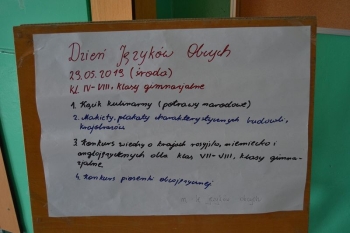 Dzień Języków Obcych
29.05.2019 (środa)
kl. IV-VIII, klasy gimnazjalne
1. Kącik kulinarny (potrawy narodowe)
2. Makiety, plakaty charakterystycznych budowli, krajobrazów
3. Konkurs wiedzy o krajach rosyjsko, niemiecko i
anglojęzycznych dla klas VII-VIII, klasy gimna-
zjalne
4. Konkurs piosenki obcojęzycznej